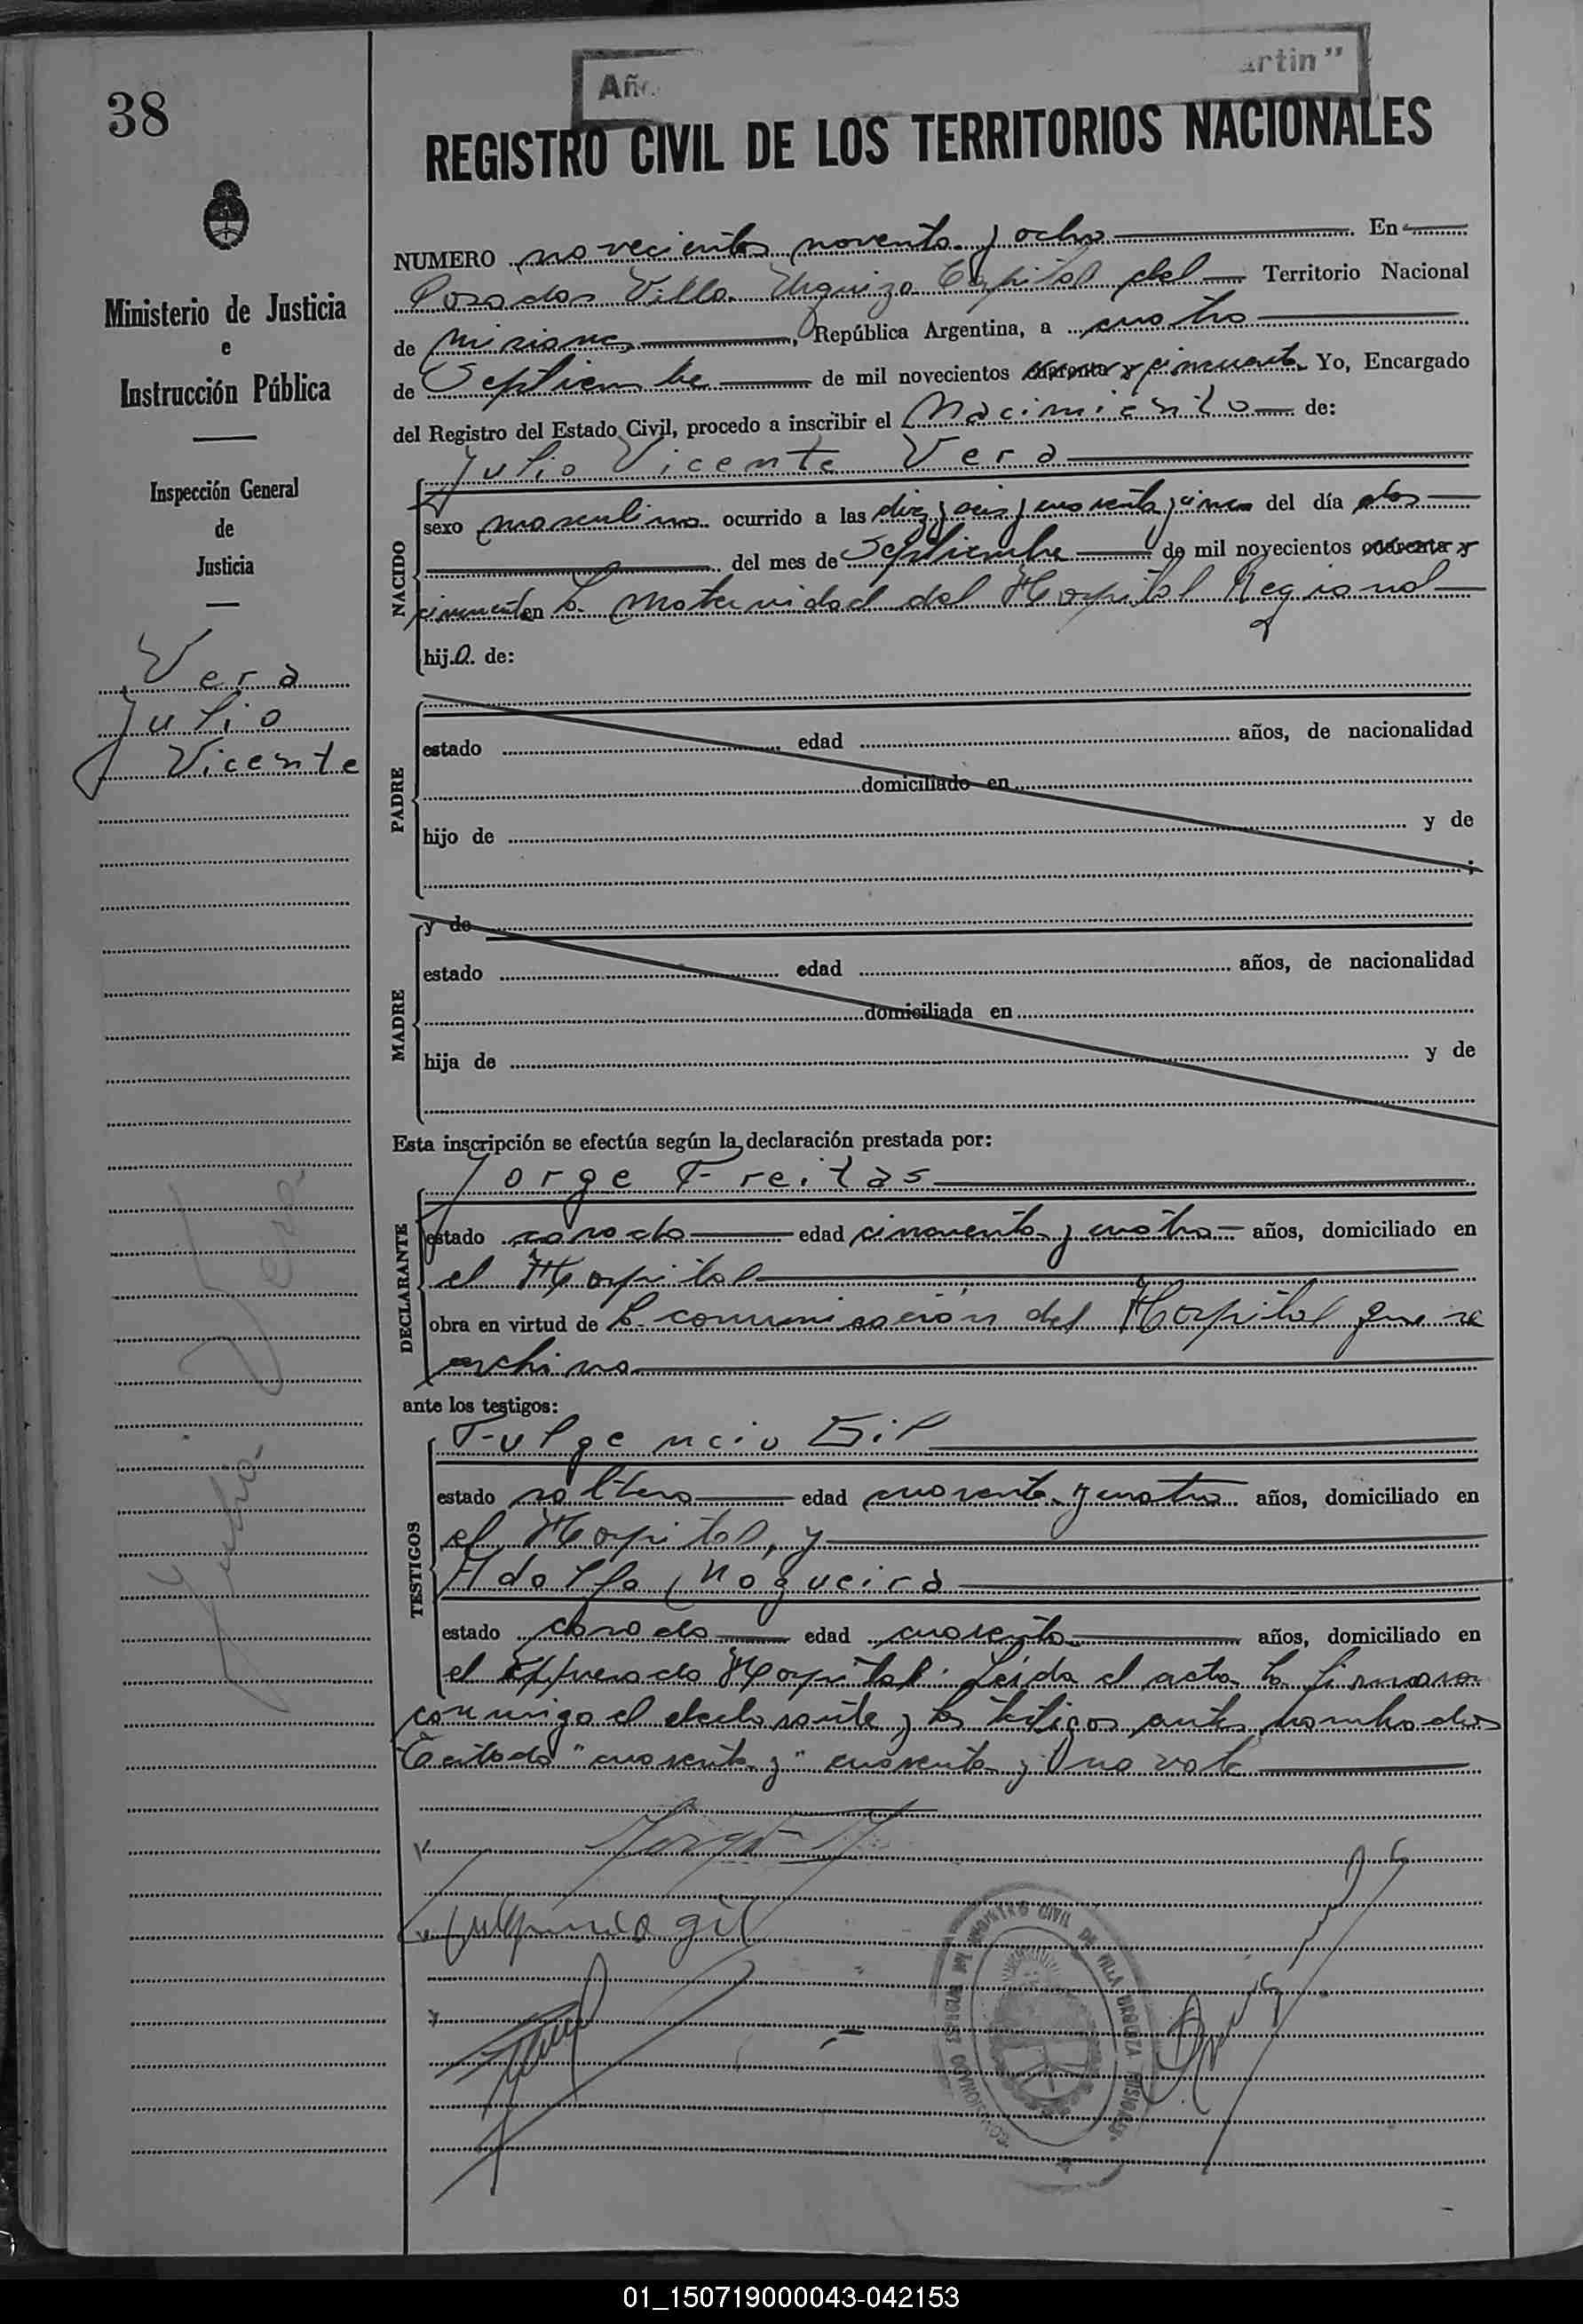 38
Añ
artin"
REGISTRO CIVIL DE LOS TERRITORIOS NACIONALES
Ministerio de Justicia
e
Instrucción Pública
Inspección General
de
Justicia
Vera
Julio
Vicente
NUMERO novecientos noventa y ocho En
Posadas Villa Urquiza Capital del Territorio Nacional
de Misiones, República Argentina, a cuatro
de Septiembre de mil novecientos cuarenta y cincuenta Yo, Encargado
del Registro del Estado Civil, procedo a inscribir el Nacimiento de:
Julio Vicente Vera
NACIDO
sexo masculino ocurrido a las diez y seis y cuarenta y cinco del día dos
del mes de Septiembre de mil novecientos cuarenta y
cincuenta en la Maternidad del Hospital Regional
hijo de:
PADRE
estado edad años, de nacionalidad
domiciliado en
hijo de y de
;
MADRE
y de
estado edad años, de nacionalidad
domiciliada en
hija de y de
Esta inscripción se efectúa según la declaración prestada por:
DECLARANTE
Jorge Freitas
estado casado edad cincuenta y cuatro años, domiciliado en
el Hospital
obra en virtud de la comunicación del Hospital que se
archiva
ante los testigos:
TESTIGOS
Fulgencio Gil
estado soltero edad cuarenta y cuatro años, domiciliado en
el Hospital, y
Adolfo Nogueira
estado casado edad cuarenta años, domiciliado en
el Hospital. Leida el acta la firmaron
conmigo el declarante y los testigos antes nombrados
Testado "cuarenta y" cuarenta y no vale
Julio Vera
Fulgencio gil
REGISTRO CIVIL DE VILLA URQUIZA MISIONES
01_150719000043-042153